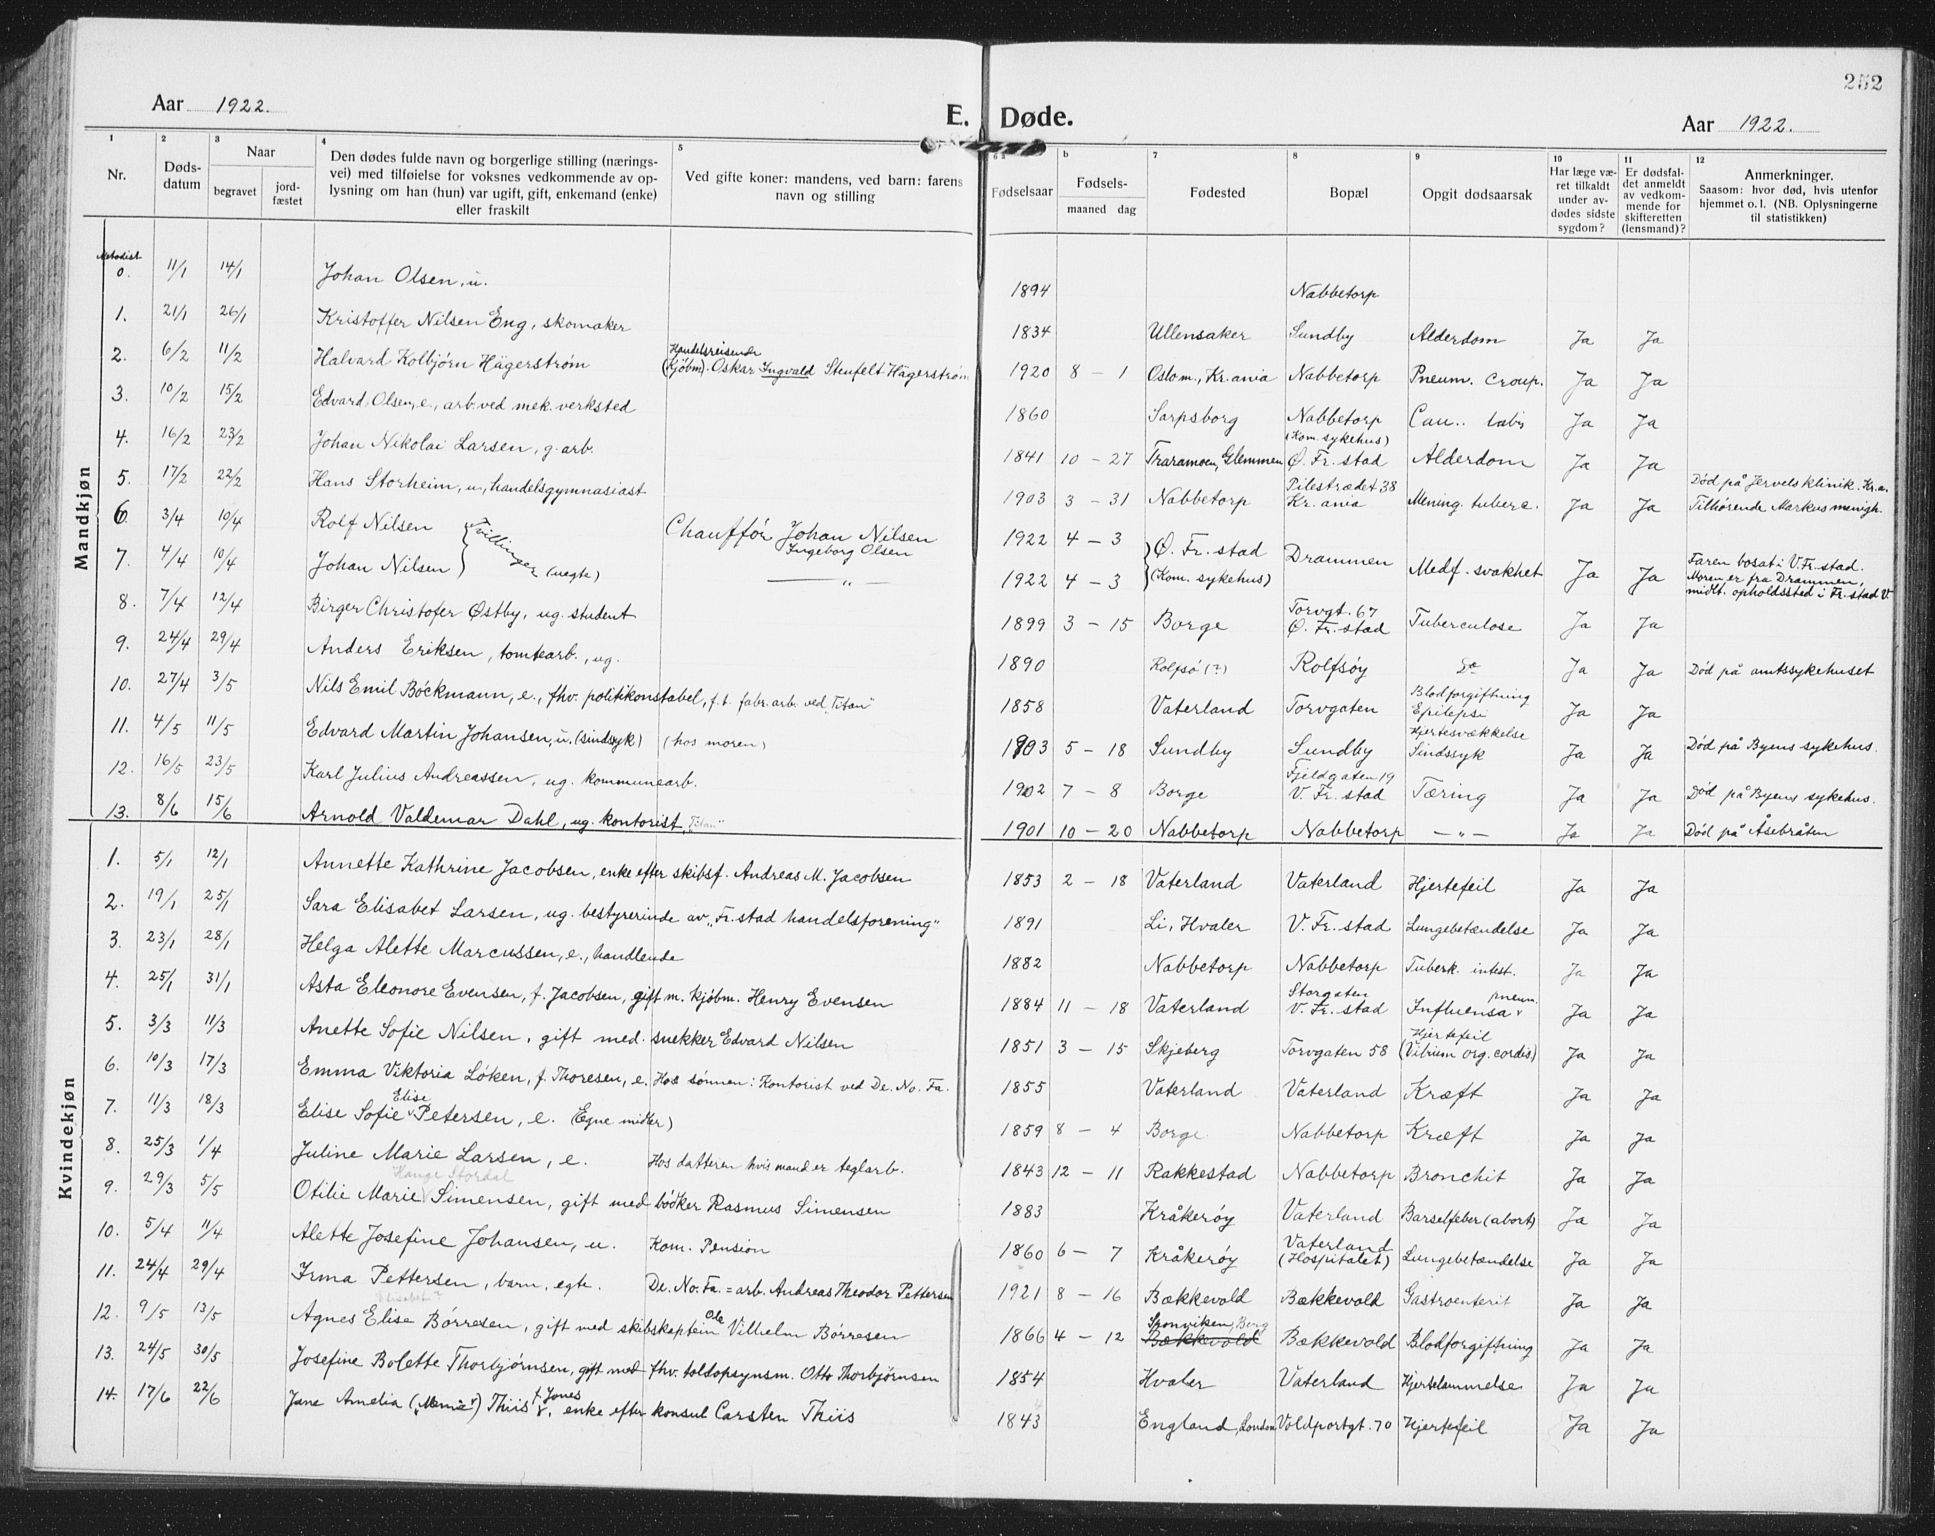 252
Aar 1922. E. Døde. Aar 1922.
1 2 3 4 5 6 a b 7 8 9 10 11 12
Nr. Døds-datum Naar begravet jord-fæstet Den dødes fulde navn og borgerlige stilling (nærings-vei) med tilføielse for voksnes vedkommende av op-lysning om han (hun) var ugift, gift, enkemand (enke) eller fraskilt Ved gifte koner: mandens, ved barn: farens navn og stilling Fødselsaar Fødsels- maaned dag Fødested Bopæl Opgit dødsaarsak Har læge væ-ret tilkaldt under av-dødes sidste sygdom? Er dødsfal-det anmeldt av vedkom-mende for skifteretten (lensmand)? Anmerkninger. Saasom: hvor død, hvis utenfor hjemmet o. l. (NB. Oplysningerne til statistikken)
Mandkjøn
Metodist 0. 11/1 14/1 Johan Olsen, u. 1894 Nabbetorp
1. 21/1 26/1 Kristoffer Nilsen Eng, skomaker 1834 Ullensaker Sundby Alderdom Ja Ja
2. 6/2 11/2 Halvard Kolbjørn Hägerstrøm Handelsreisende (Kjøbm). Oskar Ingvald Stenfelt Hägerstrøm 1920 8 - 1 Oslo m., Kr.ania Nabbetorp Pneum. Croup. Ja Ja
3. 10/2 15/2 Edvard Olsen, e., arb. ved mek. verksted 1860 Sarpsborg Nabbetorp (Kom. sykehus) Ja Ja
4. 16/2 23/2 Johan Nikolai Larsen, g. arb. 1841 10 - 27 Traramoen, Glemmen Ø. Fr.stad Alderdom Ja Ja
5. 17/2 22/2 Hans Storheim, u., handelsgymnasiast 1903 3 - 31 Nabbetorp Pilestrædet 38 Kr.ania Mening. tuberc. Ja Ja Død på Jervels klinik. Kr.a. Tilhørende Markus menigh.
6 3/4 10/4 Rolf Nilsen Tvillinger (uegte) Chauffør Johan Nilsen Ingeborg Olsen 1922 4 - 3 Ø. Fr.stad (Kom. sykehus) Drammen Medf. svakhet Ja Ja Faren bosat i V. Fr.stad. Moren er fra Drammen, midt. opholdssted i Fr.stad V.
7. 4/4 10/4 Johan Nilsen — " — 1922 4 - 3
8. 7/4 12/4 Birger Christofer Østby, ug. student 1899 3 - 15 Borge Torvgt. 67 Ø. Fr.stad Tuberculose Ja Ja
9. 24/4 29/4 Anders Eriksen, tomtearb., ug. 1890 Rolfsø (?) Rolfsøy Do Ja Ja Død på amtssykehuset
10. 27/4 3/5 Nils Emil Böckmann, e., fhv. politikonstabel, f.t. fabr.arb. ved "Titan" 1858 Vaterland Torvgaten Blodforgiftning Epilepsi Ja Ja
11. 4/5 11/5 Edvard Martin Johansen, u. (sindssyk) (hos moren) 1903 5 - 18 Sundby Sundby Hjertesvækkelse Sindssyk Ja Ja Død på Byens sykehus.
12. 16/5 23/5 Karl Julius Andreassen, ug. kommunearb. 1902 7 - 8 Borge Fjeldgaten 19 V. Fr.stad Tæring Ja Ja Død på Byens sykehus.
13. 8/6 15/6 Arnold Valdemar Dahl, ug. kontorist "Titan" 1901 10 - 20 Nabbetorp Nabbetorp — " — Ja Ja Død på Åsebråten
Kvindekjøn
1. 5/1 12/1 Annette Kathrine Jacobsen, enke efter skibsf. Andreas M. Jacobsen 1853 2 - 18 Vaterland Vaterland Hjertefeil Ja Ja
2. 19/1 25/1 Sara Elisabet Larsen, ug. bestyrerinde av "Fr.stad handelsforening" 1891 Li, Hvaler V. Fr.stad Lungebetændelse Ja Ja
3. 23/1 28/1 Helga Alette Marcussen, e., handlende 1882 Nabbetorp Nabbetorp Tuberk. intest. Ja Ja
4. 25/1 31/1 Asta Eleonore Evensen, f. Jacobsen, gift m. kjøbm. Henry Evensen 1884 11 - 18 Vaterland Storgaten V. Fr.stad Influensa pneum. Ja Ja
5. 3/3 11/3 Anette Sofie Nilsen, gift med snekker Edvard Nilsen 1851 3 - 15 Skjeberg Torvgaten 58 Hjertefeil (Vitium org. cordis) Ja Ja
6. 10/3 17/3 Emma Viktoria Løken, f. Thoresen, e. Hos sønnen: Kontorist ved De. No. Fa. 1855 Vaterland Vaterland Kræft Ja Ja
7. 11/3 18/3 Elise Sofie Elise Petersen, e. (Egne midler) 1859 8 - 4 Borge Nabbetorp Kræft Ja Ja
8. 25/3 1/4 Juline Marie Larsen, e. Hos datteren hvis mand er teglarb. 1843 12 - 11 Rakkestad Nabbetorp Bronchit Ja Ja
9. 29/3 5/5 Otilie Marie Hauge Stordal Simensen, gift med bödker Rasmus Simensen 1883 Kråkerøy Vaterland Barselfeber (abort) Ja Ja
10. 5/4 11/4 Alette Josefine Johansen, u. Kom. Pension 1860 6 - 7 Kråkerøy Vaterland (Hospitalet) Lungebetændelse Ja Ja
11. 24/4 29/4 Irma Pettersen, barn, egte. De. No. Fa. = arb. Andreas Theodor Pettersen 1921 8 - 16 Bækkevold Bækkevold Gastroenterit Ja Ja
12. 9/5 13/5 Elisabet? Agnes Elise Børresen, gift med skibskaptein Ole Vilhelm Børresen 1866 4 - 12 Sponviken, Berg Bækkevold Bækkevold Blodforgiftning Ja Ja
13. 24/5 30/5 Josefine Bolette Thorbjørnsen, gift med fhv. toldopsynsm. Otto Thorbjørnsen 1854 Hvaler Vaterland Hjertelammelse Ja Ja
14. 17/6 22/6 Jane Amelia ("Memie") Thiis f. Jones, enke efter konsul Carsten Thiis 1843 England, London Voldportgt. 70 Hjertefeil Ja Ja